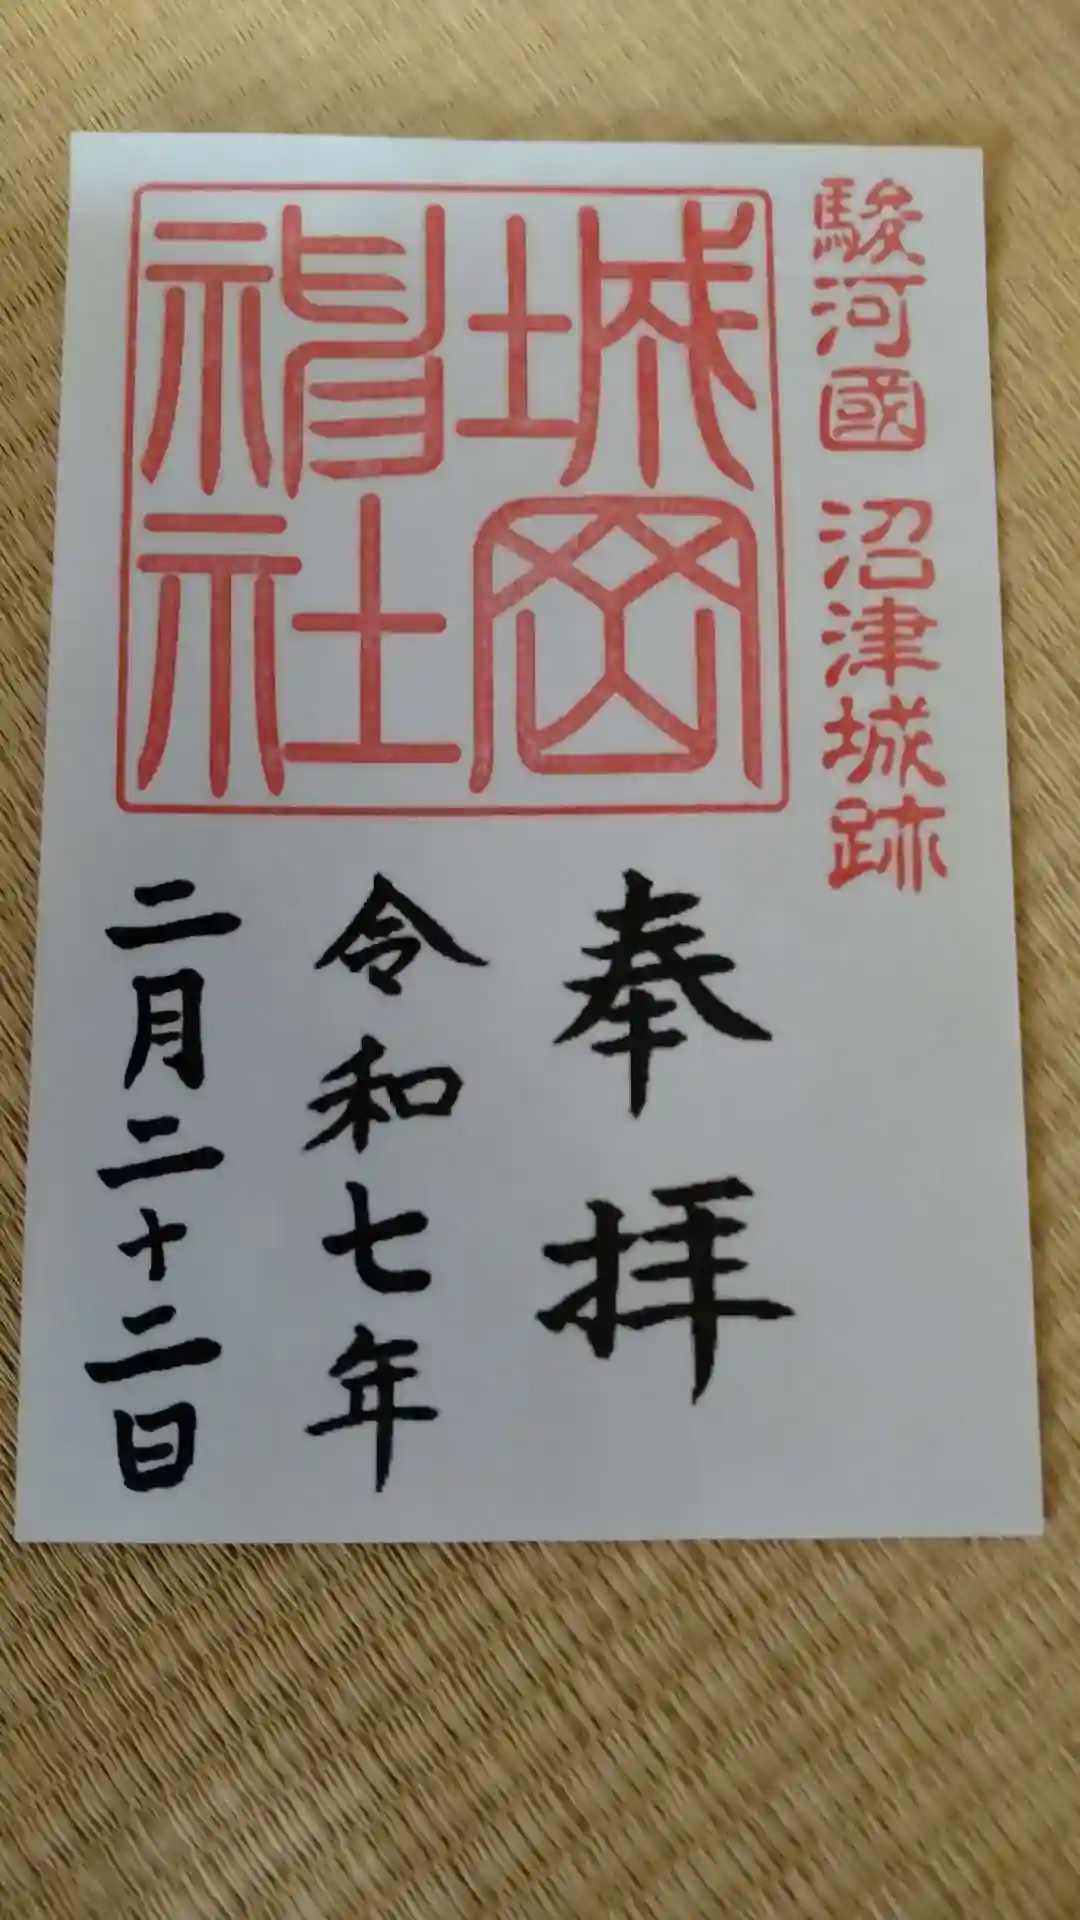 駿河國 沼津城跡
城岡
神社
奉拝
令和七年
二月二十二日